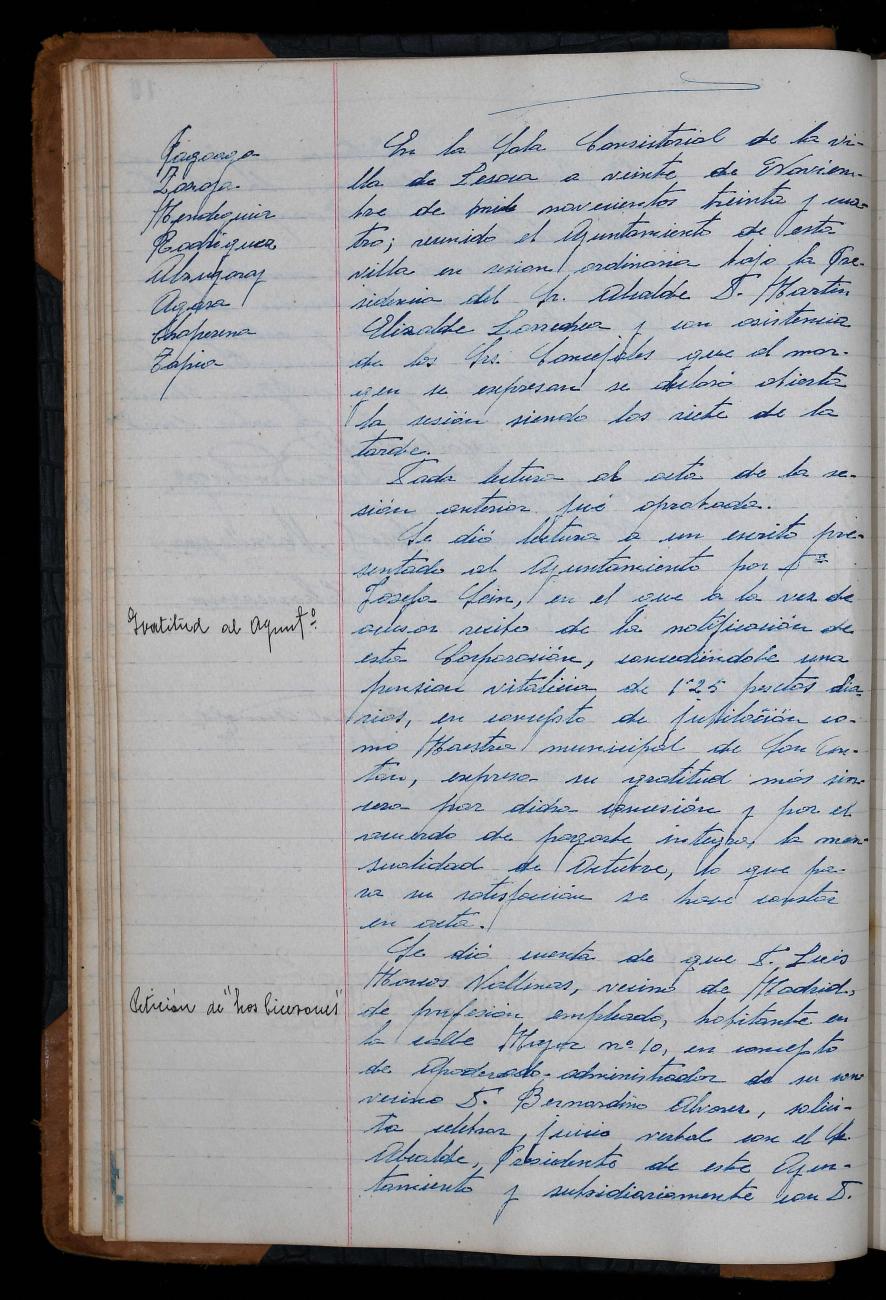 Zaroya
Mendiguia
Rodriguez
Alzugaray
Agara
Chaperena
Tapia
En la Sala Consistorial de la vi-
lla de Lesaca a veinte de Noviem-
bre de mil novecientos treinta y cua-
tro; reunido el Ayuntamiento de esta
villa en sesion ordinaria bajo la Pre-
sidencia del Sr. Alcalde D. Martin
Elizalde Larrechea y con asistencia
de los Srs. Concejales que al mar-
gen se expresan se declaró abierta
la sesión siendo las siete de la
tarde.
Dada lectura al acta de la se-
sión anterior fué aprobada.
Se dió lectura a un escrito pre-
sentado al Ayuntamiento por Dª
Josefa Sein, en el que a la vez de
acusar recibo de la notificación de
esta Corporación, concediéndole una
pension vitalicia de 1'25 pesetas dia-
rias, en concepto de jubilación co-
mo Maestra municipal de San An-
tón, expresa su gratitud más sin-
cera por dicha concesión y por el
acuerdo de pagarle integra la men-
sualidad de Octubre, lo que pa-
ra su satisfacción se hace constar
en acta.
Gratitud al Ayuntº
Se dió cuenta de que D. Luis
Marcos Vallinas, vecino de Madrid,
de profesión empleado, habitante en
la calle Mayor nº 10, en concepto
de Apoderado-administrador de su con
vecino D. Bernardino Alvarez, solici-
ta celebrar juicio verbal con el Sr.
Alcalde, Presidente de este Ayun-
tamiento y subsidiariamente con D.
Petición de "Los Cicerones"